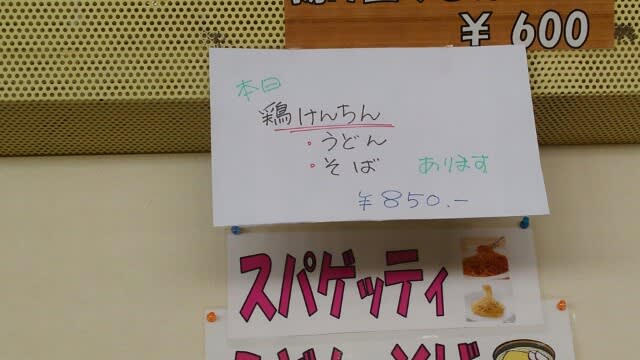 ¥ 600
本日
鶏けんちん
・うどん
・そば あります
¥850.-
スパゲッティ
うどん・そば